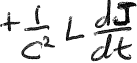 + \frac{1}{C^2} L \frac{dJ}{dt}